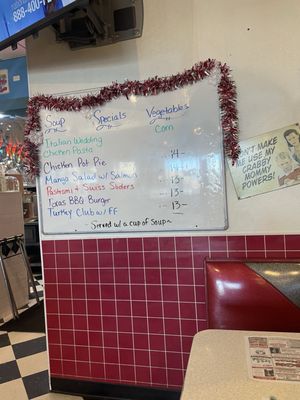 888-400-
Soup
Specials
Vegetables
Italian Wedding
Corn
Chicken Pasta
Chicken Pot Pie 14-
Mango Salad w/ Salmon
Pastrami & Swiss Sliders 13-
Texas BBQ Burger 13-
Turkey Club w/ FF 13-
~ Served w/ a cup of soup ~
DON'T MAKE
ME USE MY
CRABBY
MOMMY
POWERS!